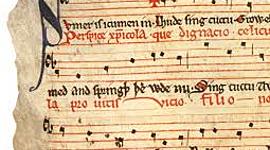 Svmer is icumen in. Lhude sing cuccu. Growe
Perspice xp̄icola. que dignacio. celicus
med and springþ þe wde nu. Sing cuccu
la pro uitis vicio. filio